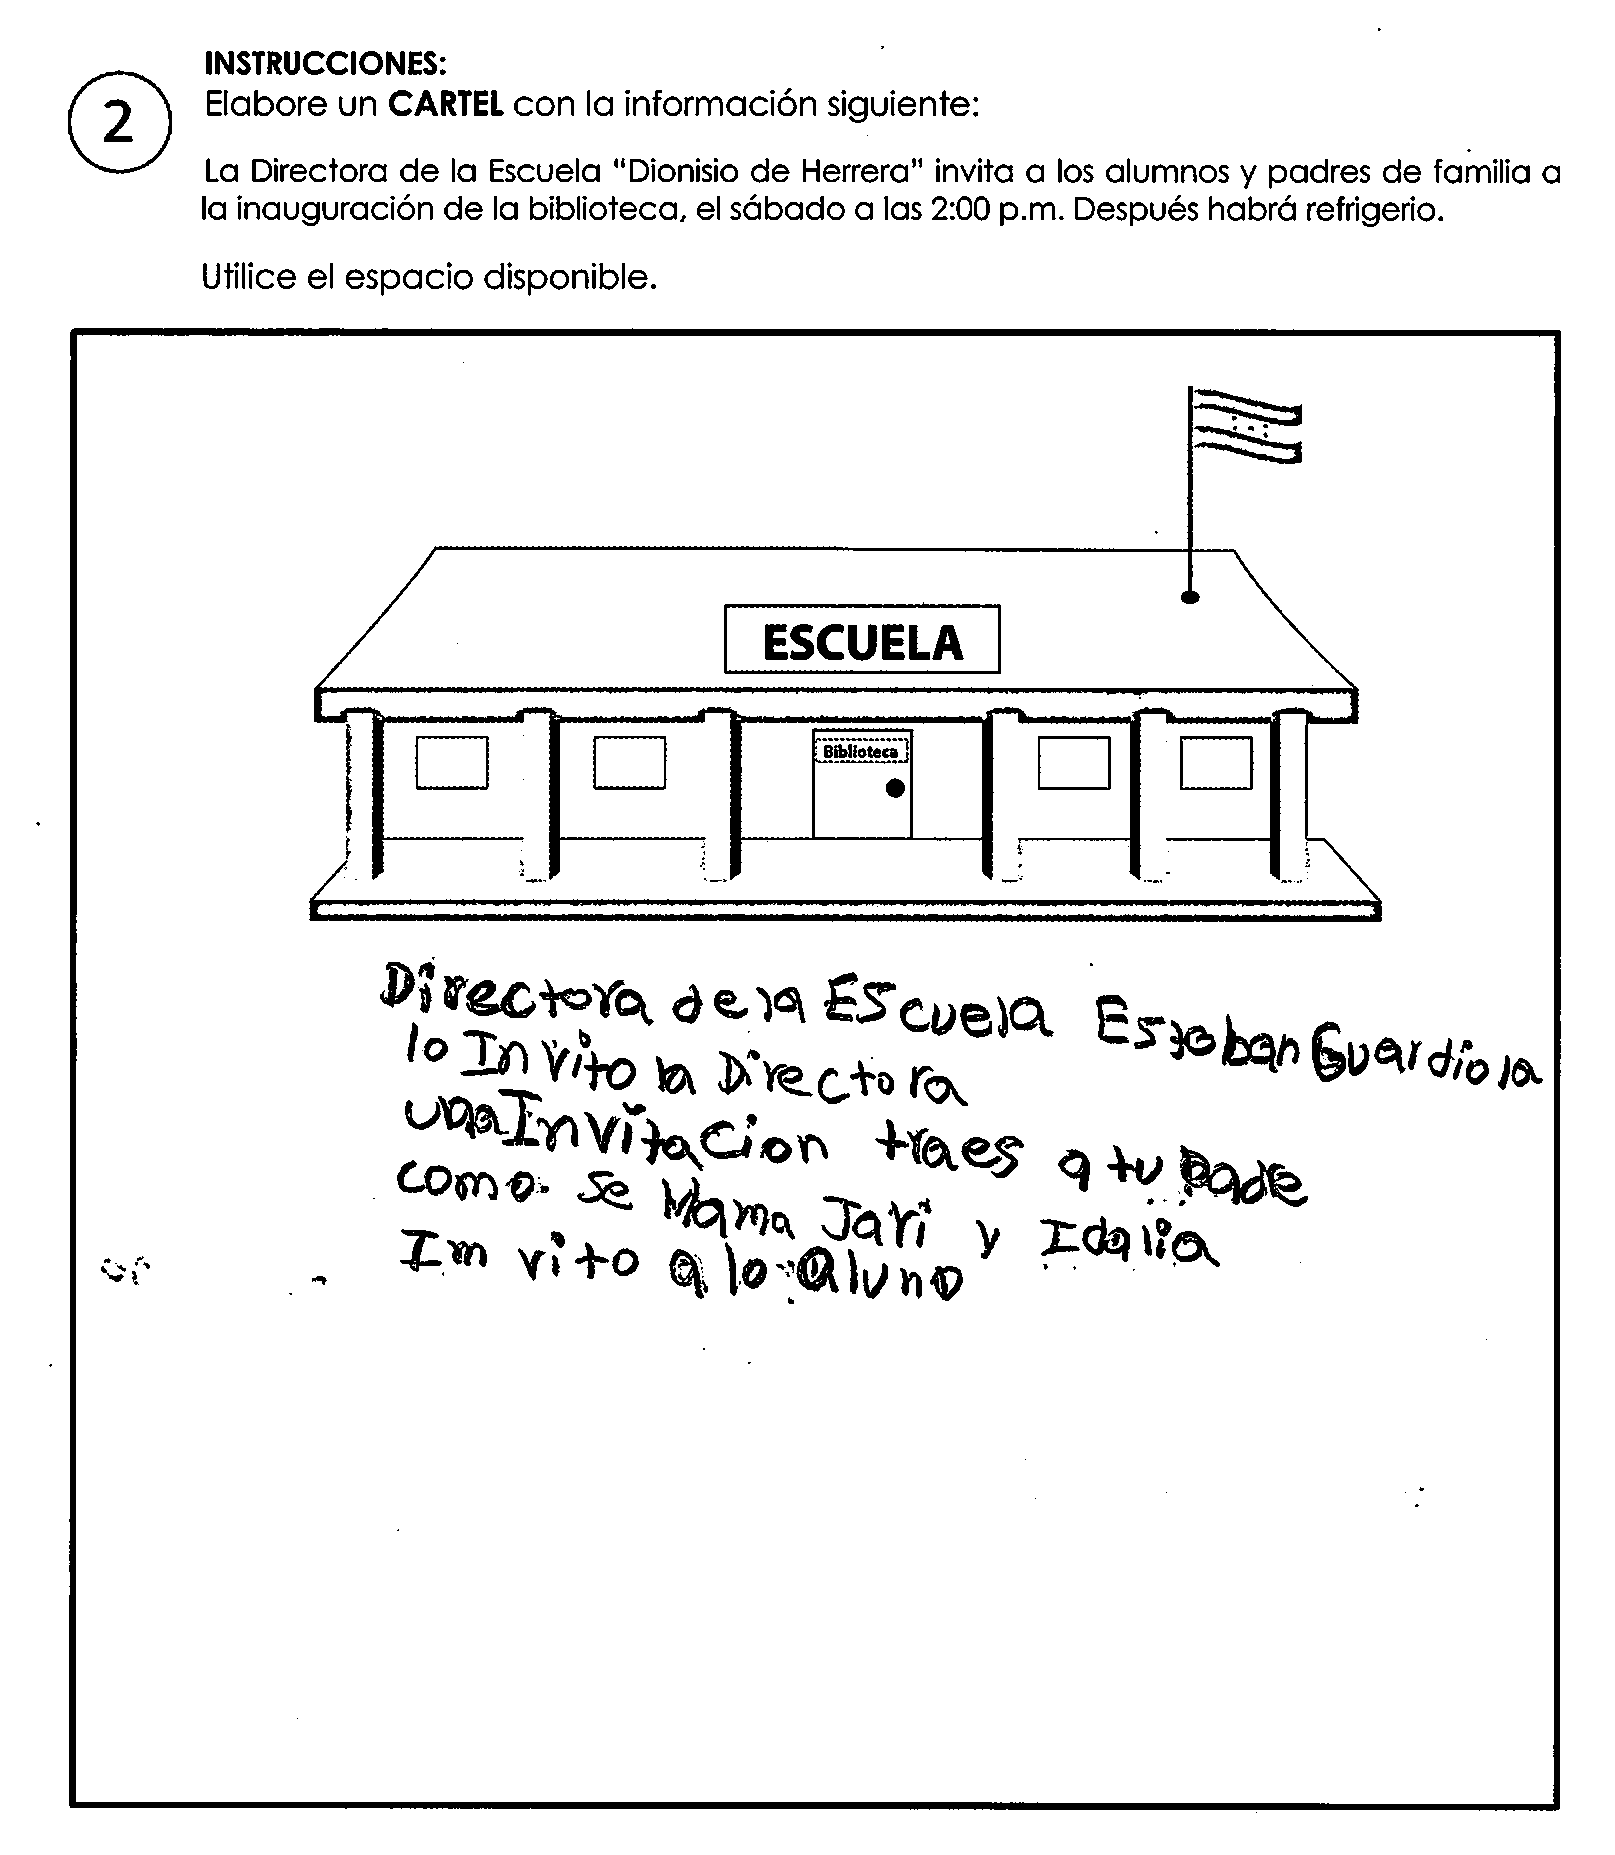 2
INSTRUCCIONES:
Elabore un CARTEL con la información siguiente:
La Directora de la Escuela “Dionisio de Herrera” invita a los alumnos y padres de familia a
la inauguración de la biblioteca, el sábado a las 2:00 p.m. Después habrá refrigerio.
Utilice el espacio disponible.
ESCUELA
Biblioteca
Directora de la EScuela Esteban Guardiola
lo Invito la Directora
una Invitacion traes a tu Pade
como se Mama Jari y Idalia
Im vito a lo aluno